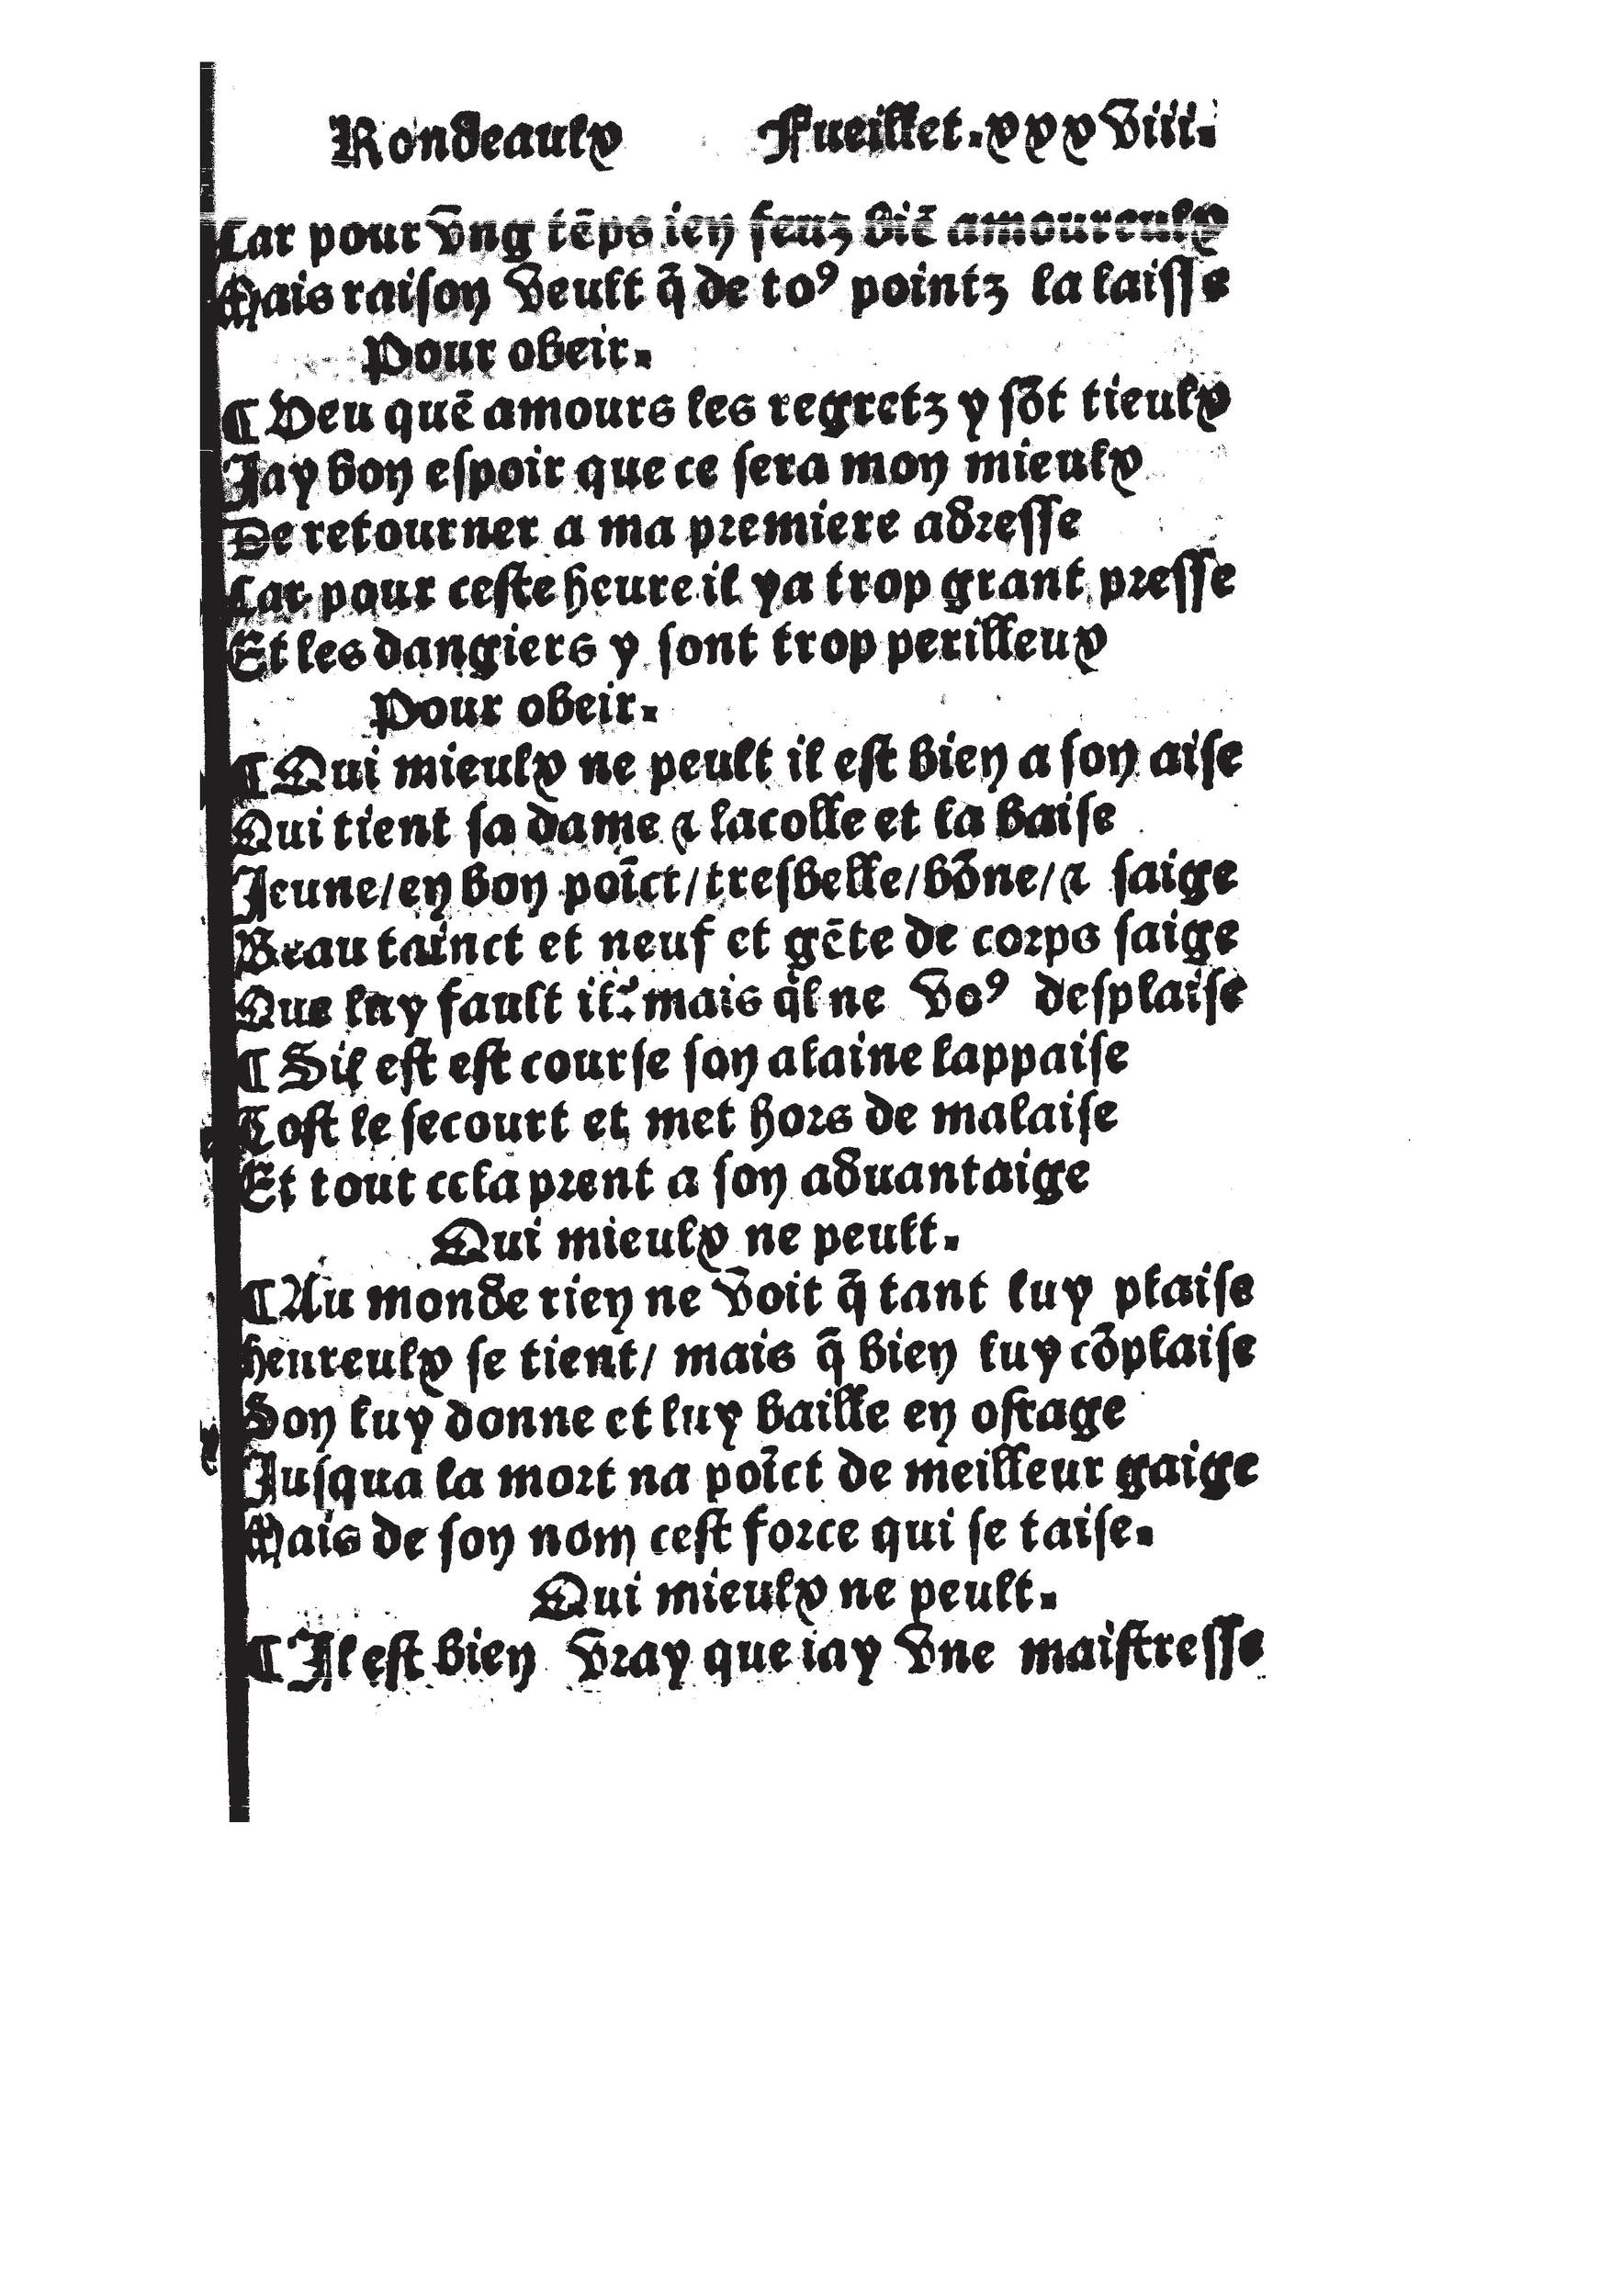 Rondeaulx Fueillet.xxxviii.
Car pour vng tēps ien feuz biē amoureulx
Mais raiſon veult q̄ de toꝰ pointz la laiſſe
Pour obeir.
¶ Veu quē amours les regretz y ſōt tieulx
Jay bon eſpoir que ce ſera mon mieulx
De retourner a ma premiere adreſſe
Car pour ceſte heure il ya trop grant preſſe
Et les dangiers y ſont trop perilleux
Pour obeir.
¶ Qui mieulx ne peult il eſt bien a ſon aiſe
Qui tient ſa dame ⁊ lacolle et la baiſe
Jeune/en bon poīct/treſbelle/bōne/⁊ ſaige
Beau tainct et neuf et gēte de corps ſaige
Que luy fault il: mais q̇l ne voꝰ deſplaiſe
¶ Sil eſt eſt courſe ſon alaine lappaiſe
Toſt le ſecourt et met hors de malaiſe
Et tout cela prent a ſon aduantaige
Qui mieulx ne peult.
¶ Au monde rien ne voit q̄ tant luy plaiſe
heureulx ſe tient/ mais q̄ bien luy cōplaiſe
Son luy donne et luy baille en oſtage
Juſqua la mort na poīct de meilleur gaige
Mais de ſon nom ceſt force qui ſe taiſe.
Qui mieulx ne peult.
¶ Il eſt bien vray que iay vne maiſtreſſe